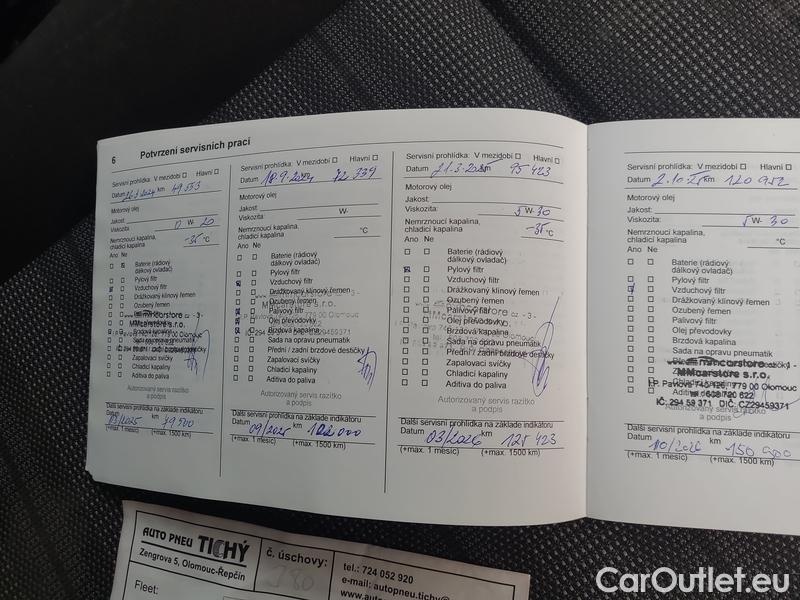 6 Potvrzení servisních prací
Servisní prohlídka: V mezidobí Hlavní
Datum km 49 553
Motorový olej
Jakost:
Viskozita: 0 W- 20
Nemrznoucí kapalina,
chladicí kapalina -35 °C
Ano Ne
Baterie (rádiový
dálkový ovladač)
Pylový filtr
Vzduchový filtr
Drážkovaný klínový řemen
Ozubený řemen
Palivový filtr
Olej převodovky
Brzdová kapalina
Sada na opravu pneumatik
Přední / zadní brzdové destičky
Zapalovací svíčky
Chladicí kapaliny
Aditiva do paliva
MMcarstore s.r.o.
Autorizovaný servis razítko
a podpis
Další servisní prohlídka na základě indikátoru
Datum km
03/2025 79500
(+max. 1 měsíc) (+max. 1500 km)
Servisní prohlídka: V mezidobí Hlavní
Datum 18.9.2024 km 72 339
Motorový olej
Jakost:
Viskozita: W-
Nemrznoucí kapalina,
chladicí kapalina °C
Ano Ne
Baterie (rádiový
dálkový ovladač)
Pylový filtr
Vzduchový filtr
Drážkovaný klínový řemen
Ozubený řemen
Palivový filtr
Olej převodovky
Brzdová kapalina
Sada na opravu pneumatik
Přední / zadní brzdové destičky
Zapalovací svíčky
Chladicí kapaliny
Aditiva do paliva
MMcarstore s.r.o.
Autorizovaný servis razítko
a podpis
Další servisní prohlídka na základě indikátoru
Datum km
09/2025 102 000
(+max. 1 měsíc) (+max. 1500 km)
Servisní prohlídka: V mezidobí Hlavní
Datum 21.3.2025 km 95 423
Motorový olej
Jakost:
Viskozita: 5 W- 30
Nemrznoucí kapalina,
chladicí kapalina -35 °C
Ano Ne
Baterie (rádiový
dálkový ovladač)
Pylový filtr
Vzduchový filtr
Drážkovaný klínový řemen
Ozubený řemen
Palivový filtr
Olej převodovky
Brzdová kapalina
Sada na opravu pneumatik
Přední / zadní brzdové destičky
Zapalovací svíčky
Chladicí kapaliny
Aditiva do paliva
Autorizovaný servis razítko
a podpis
Další servisní prohlídka na základě indikátoru
Datum km
03/2026 125 423
(+max. 1 měsíc) (+max. 1500 km)
Servisní prohlídka: V mezidobí Hlavní
Datum 2.10.25 km 120 952
Motorový olej
Jakost:
Viskozita: 5 W- 30
Nemrznoucí kapalina,
chladicí kapalina °C
Ano Ne
Baterie (rádiový
dálkový ovladač)
Pylový filtr
Vzduchový filtr
Drážkovaný klínový řemen
Ozubený řemen
Palivový filtr
Olej převodovky
Brzdová kapalina
Sada na opravu pneumatik
MMcarstore s.r.o.
I.P. Pavlova 779 00 Olomouc
IČ: 294 59 371 DIČ: CZ29459371
Autorizovaný servis razítko
a podpis
Další servisní prohlídka na základě indikátoru
Datum km
10/2026 150 900
(+max. 1 měsíc) (+max. 1500 km)
AUTO PNEU TICHÝ
Zengrova 5, Olomouc-Řepčín
č. úschovy:
tel.: 724 052 920
e-mail: autopneu.tichy@
Fleet:
CarOutlet.eu